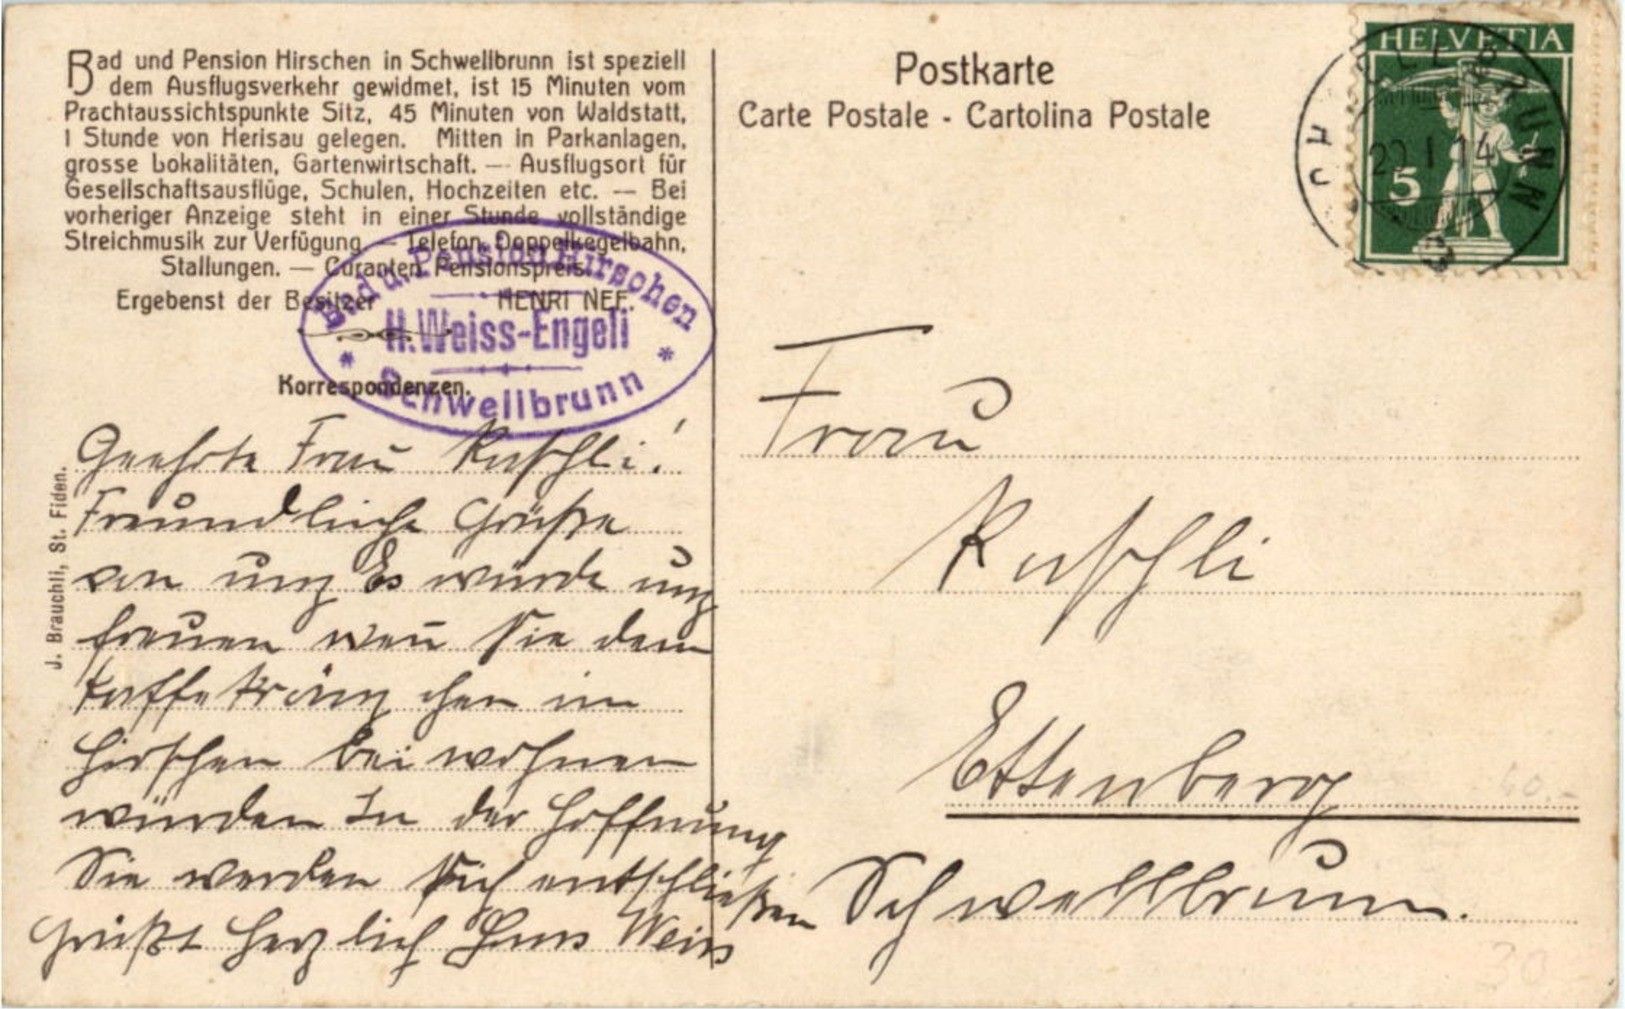 Bad und Pension Hirschen in Schwellbrunn ist speziell
dem Ausflugsverkehr gewidmet, ist 15 Minuten vom
Prachtaussichtspunkte Sitz, 45 Minuten von Waldstatt,
1 Stunde von Herisau gelegen. Mitten in Parkanlagen,
grosse Lokalitäten, Gartenwirtschaft. — Ausflugsort für
Gesellschaftsausflüge, Schulen, Hochzeiten etc. — Bei
vorheriger Anzeige steht in einer Stunde vollständige
Streichmusik zur Verfügung. — Telefon, Doppelkegelbahn,
Stallungen. — Curanten Pensionspreis.
Ergebenst der Besitzer HENRI NEF.
Bad u. Pension Hirschen
H. Weiss-Engeli
* Schwellbrunn *
Korrespondenzen.
Geehrte Frau Ruschli!
Freundliche Grüße
von uns Es würde uns
freuen wen̄ Sie dem
Kaffekränzchen im
Hirschen bei wohnen
würden In der Hoffnung
Sie werden sich entschließen
grüßt herzlich Hans Weiss
J. Brauchli, St. Fiden.
Postkarte
Carte Postale - Cartolina Postale
HELVETIA
5
SCHWELLBRUNN
22.I.14
Frau
Ruschli
Ettenberg
Schwellbrunn.
60.-
30